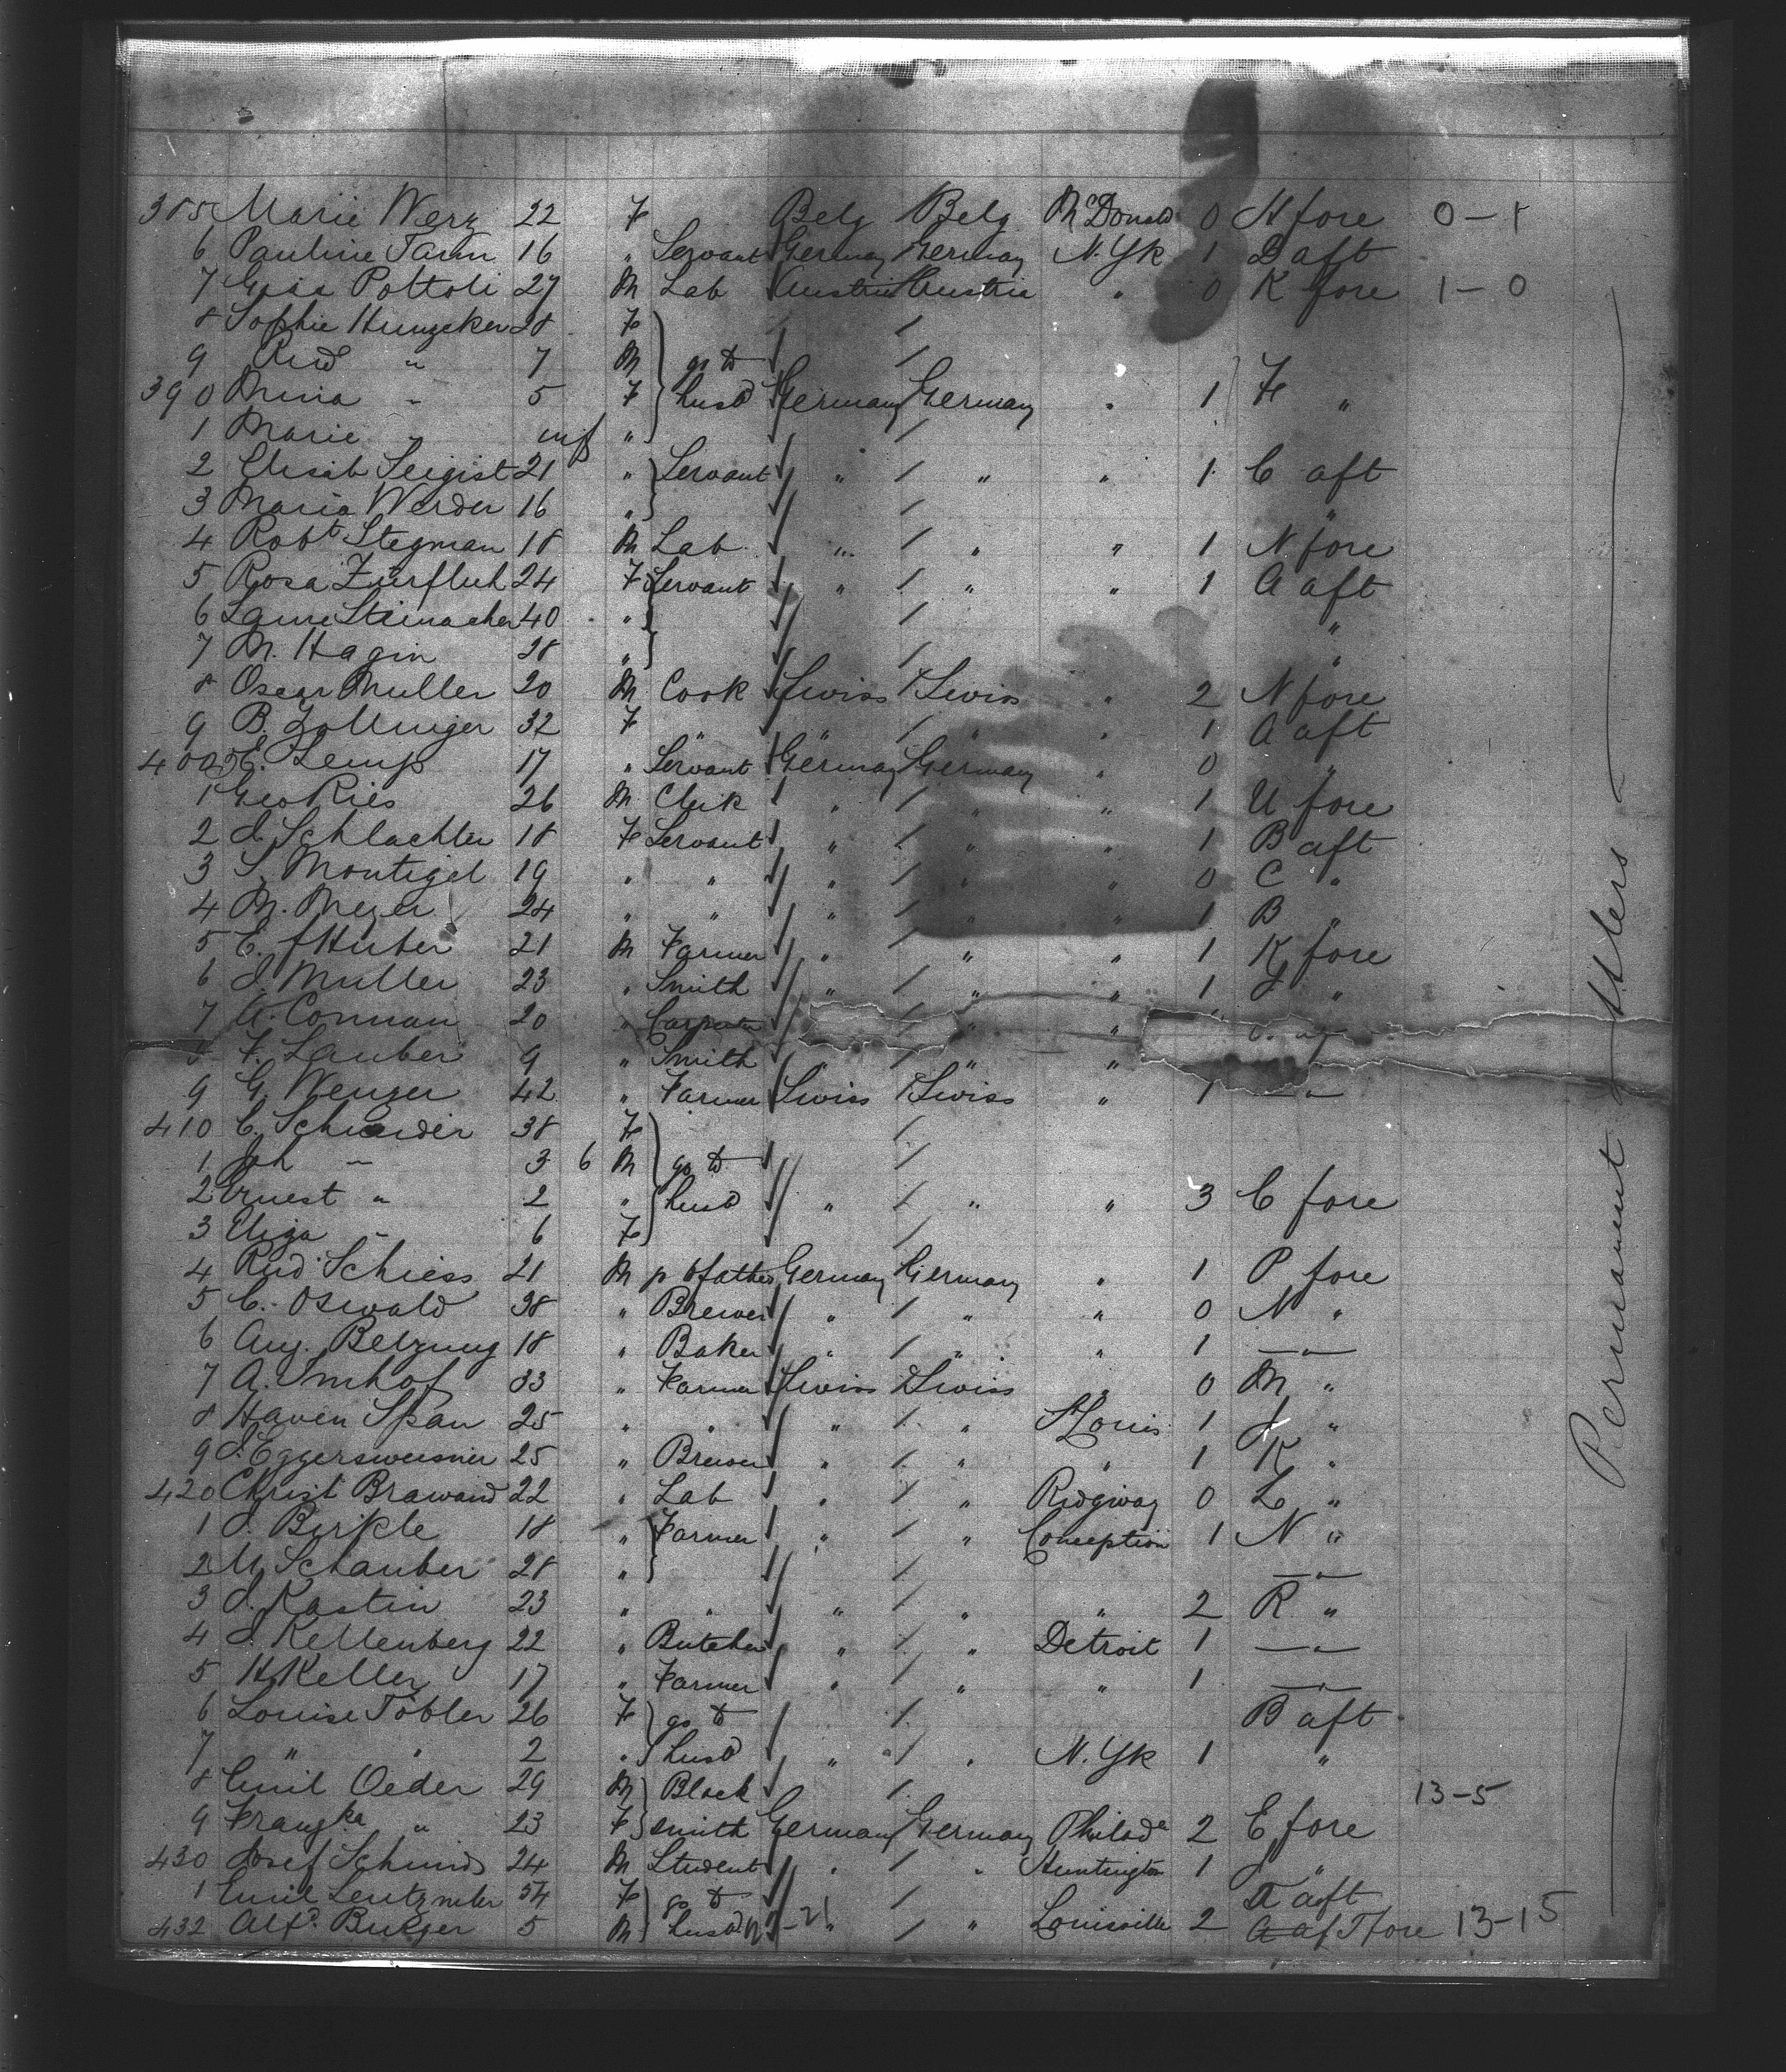 385 Marie Werz 22 F Belg Belg McDonald 0 H fore 0-1
6 Pauline Tamm 16 " Servant Germany Germany N.Yk 1 B aft
7 Pottoli 27 M Lab Austria Austria " 0 K fore 1-0
8 Sophie Hunzeker 28 F
9 Rud " 7 M go to
390 Mina " 5 F husd Germany Germany " 1 F "
1 Marie " inf "
2 Elisab Seigist 21 " Servant " " " 1 C aft
3 Maria Werder 16 " "
4 Robt Stegman 18 M Lab " " " 1 N fore
5 Rosa Zurfluh 24 F Servant " " " 1 A aft
6 Laure Steinacher 40 " "
7 M. Hagin 28 " "
8 Oscar Muller 20 M Cook Swiss Swiss " 2 N fore
9 B. Zollinger 32 F " " " " 1 A aft
400 E. Lemp 17 " Servant Germay Germany " 0 "
1 Geo Ries 26 M Clerk " " " 1 U fore
2 J. Schlachter 18 F Servant " " " 1 B aft
3 S. Montigel 19 " " " " " 0 C "
4 M. Meyer 24 " " " " " 1 B "
5 C. Huber 21 M Farmer " " " 1 K fore
6 J. Muller 23 " Smith " " " 1 J "
7 Conman 20 " "
8 F. Lauber 9 " Smith " "
9 G. Wenger 42 " Farmer Swiss Swiss " 1 — " —
410 C. Schneider 38 F
1 Joh " 3 6 M go to
2 Ernest " 2 " husd " " " 3 C fore
3 Eliza " 6 F
4 Rud Schiess 21 M father Germany Germany " 1 P fore
5 C. Oswald 38 " Brewer " " " 0 N "
6 Aug. Belzung 18 " Baker " " " 1 — " —
7 A. Imhof 33 " Farmer Swiss Swiss " 0 M "
8 Haven Span 25 " " " " St Louis 1 J "
9 J. 25 " Brewer " " " 1 K "
420 Christ Brawand 22 " Lab " " Ridgway 0 L "
1 J. Birkle 18 " Farmer " " Conception 1 N "
2 M. Schauber 28 " — " —
3 J. Kastin 23 " " " " " 2 R "
4 J. Kellenberg 22 " Butcher " " Detroit 1 — " —
5 H Keller 17 " Farmer " " " 1 — " —
6 Louise Tobler 26 F go to B aft
7 " " 2 " husd " " N.Yk 1 "
8 Emil Oeder 29 M Black 13-5
9 " 23 F smith Germany Germany Philada 2 E fore
430 Josef Schmid 24 M Student " " Huntington 1 J "
1 Emil 54 F go to aft
432 Alfd. Burger 5 M husd " " Louisville 2 fore 13-15
Permanent Settlers